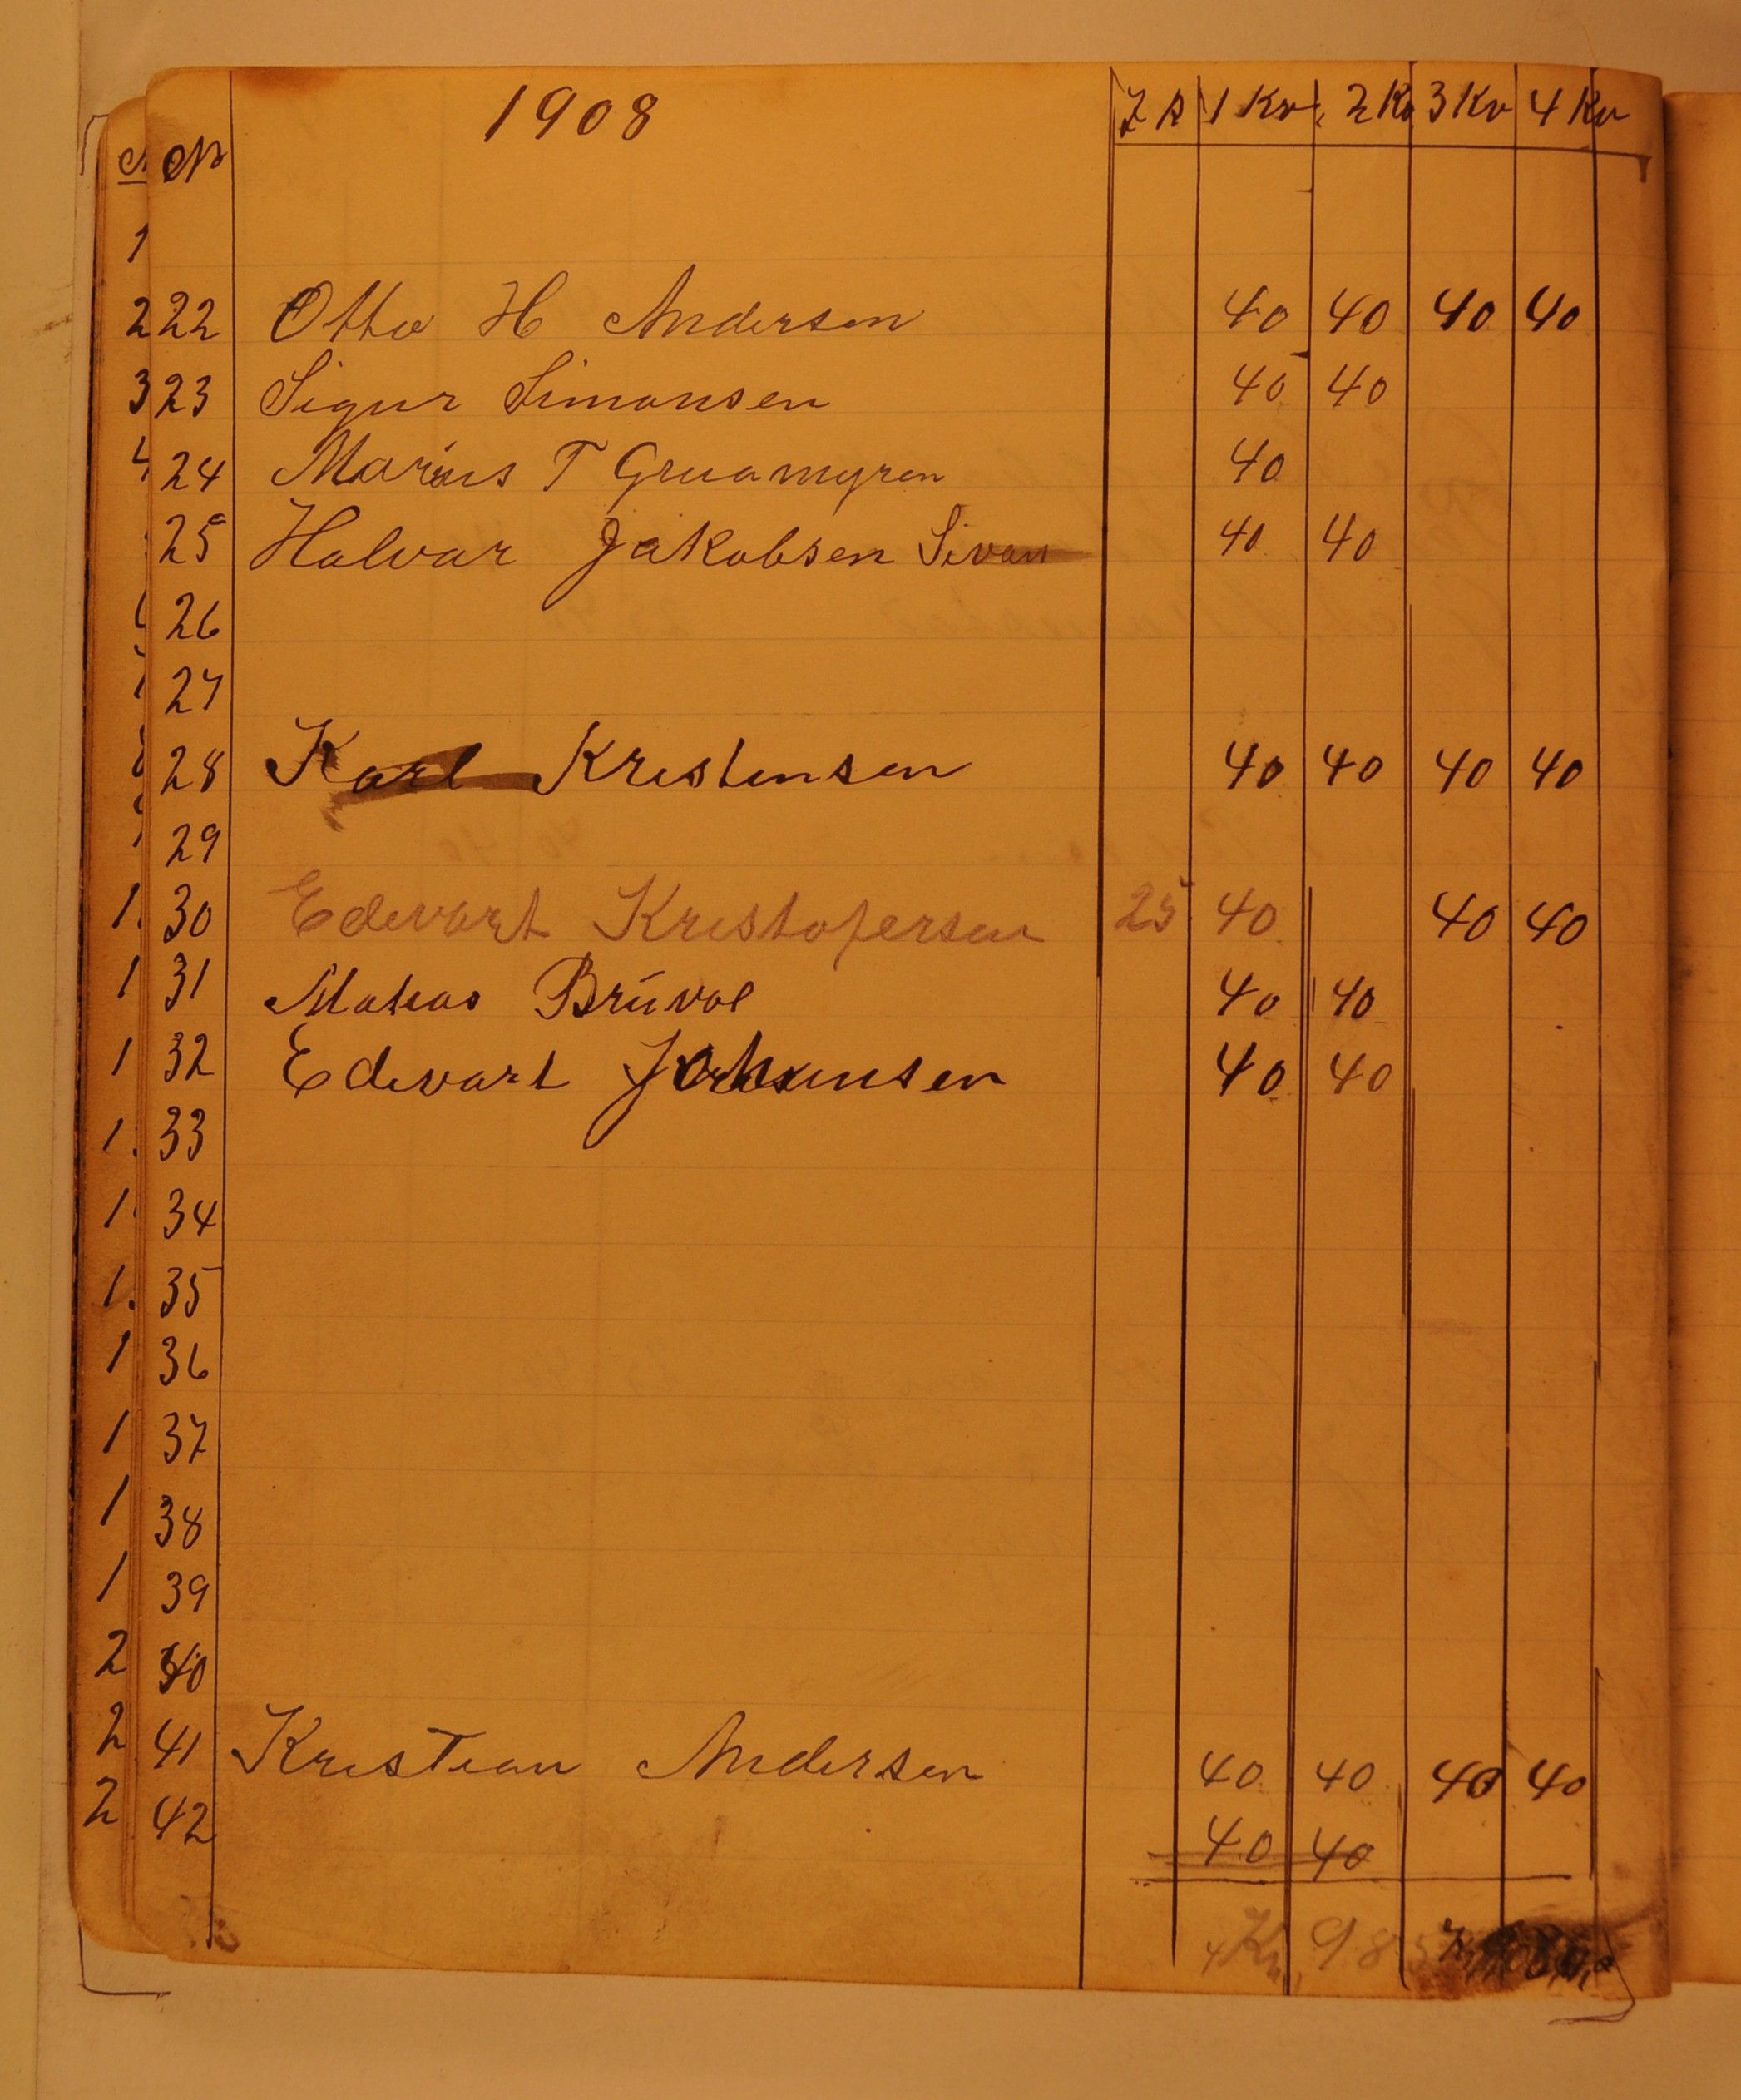 1908 1 Kv 2 Kv 3 Kv 4 Kv
No
1
2 22 Otto H Andersen 40 40 40 40
3 23 Sigur Simonsen 40 40
4 24 Marius T Gruamyren 40
25 Halvar Jakobsen Sivan 40 40
26
27
28 Karl Kristensen 40 40 40 40
29
1 30 Edevart Kristofersen 25 40 40 40
1 31 Matias Brúvol 40 40
1 32 Edevart Johansen 40 40
1 33
1 34
1 35
1 36
1 37
1 38
1 39
2 40
2 41 Kristian Andersen 40 40 40 40
2 42 40 40
Kr 985